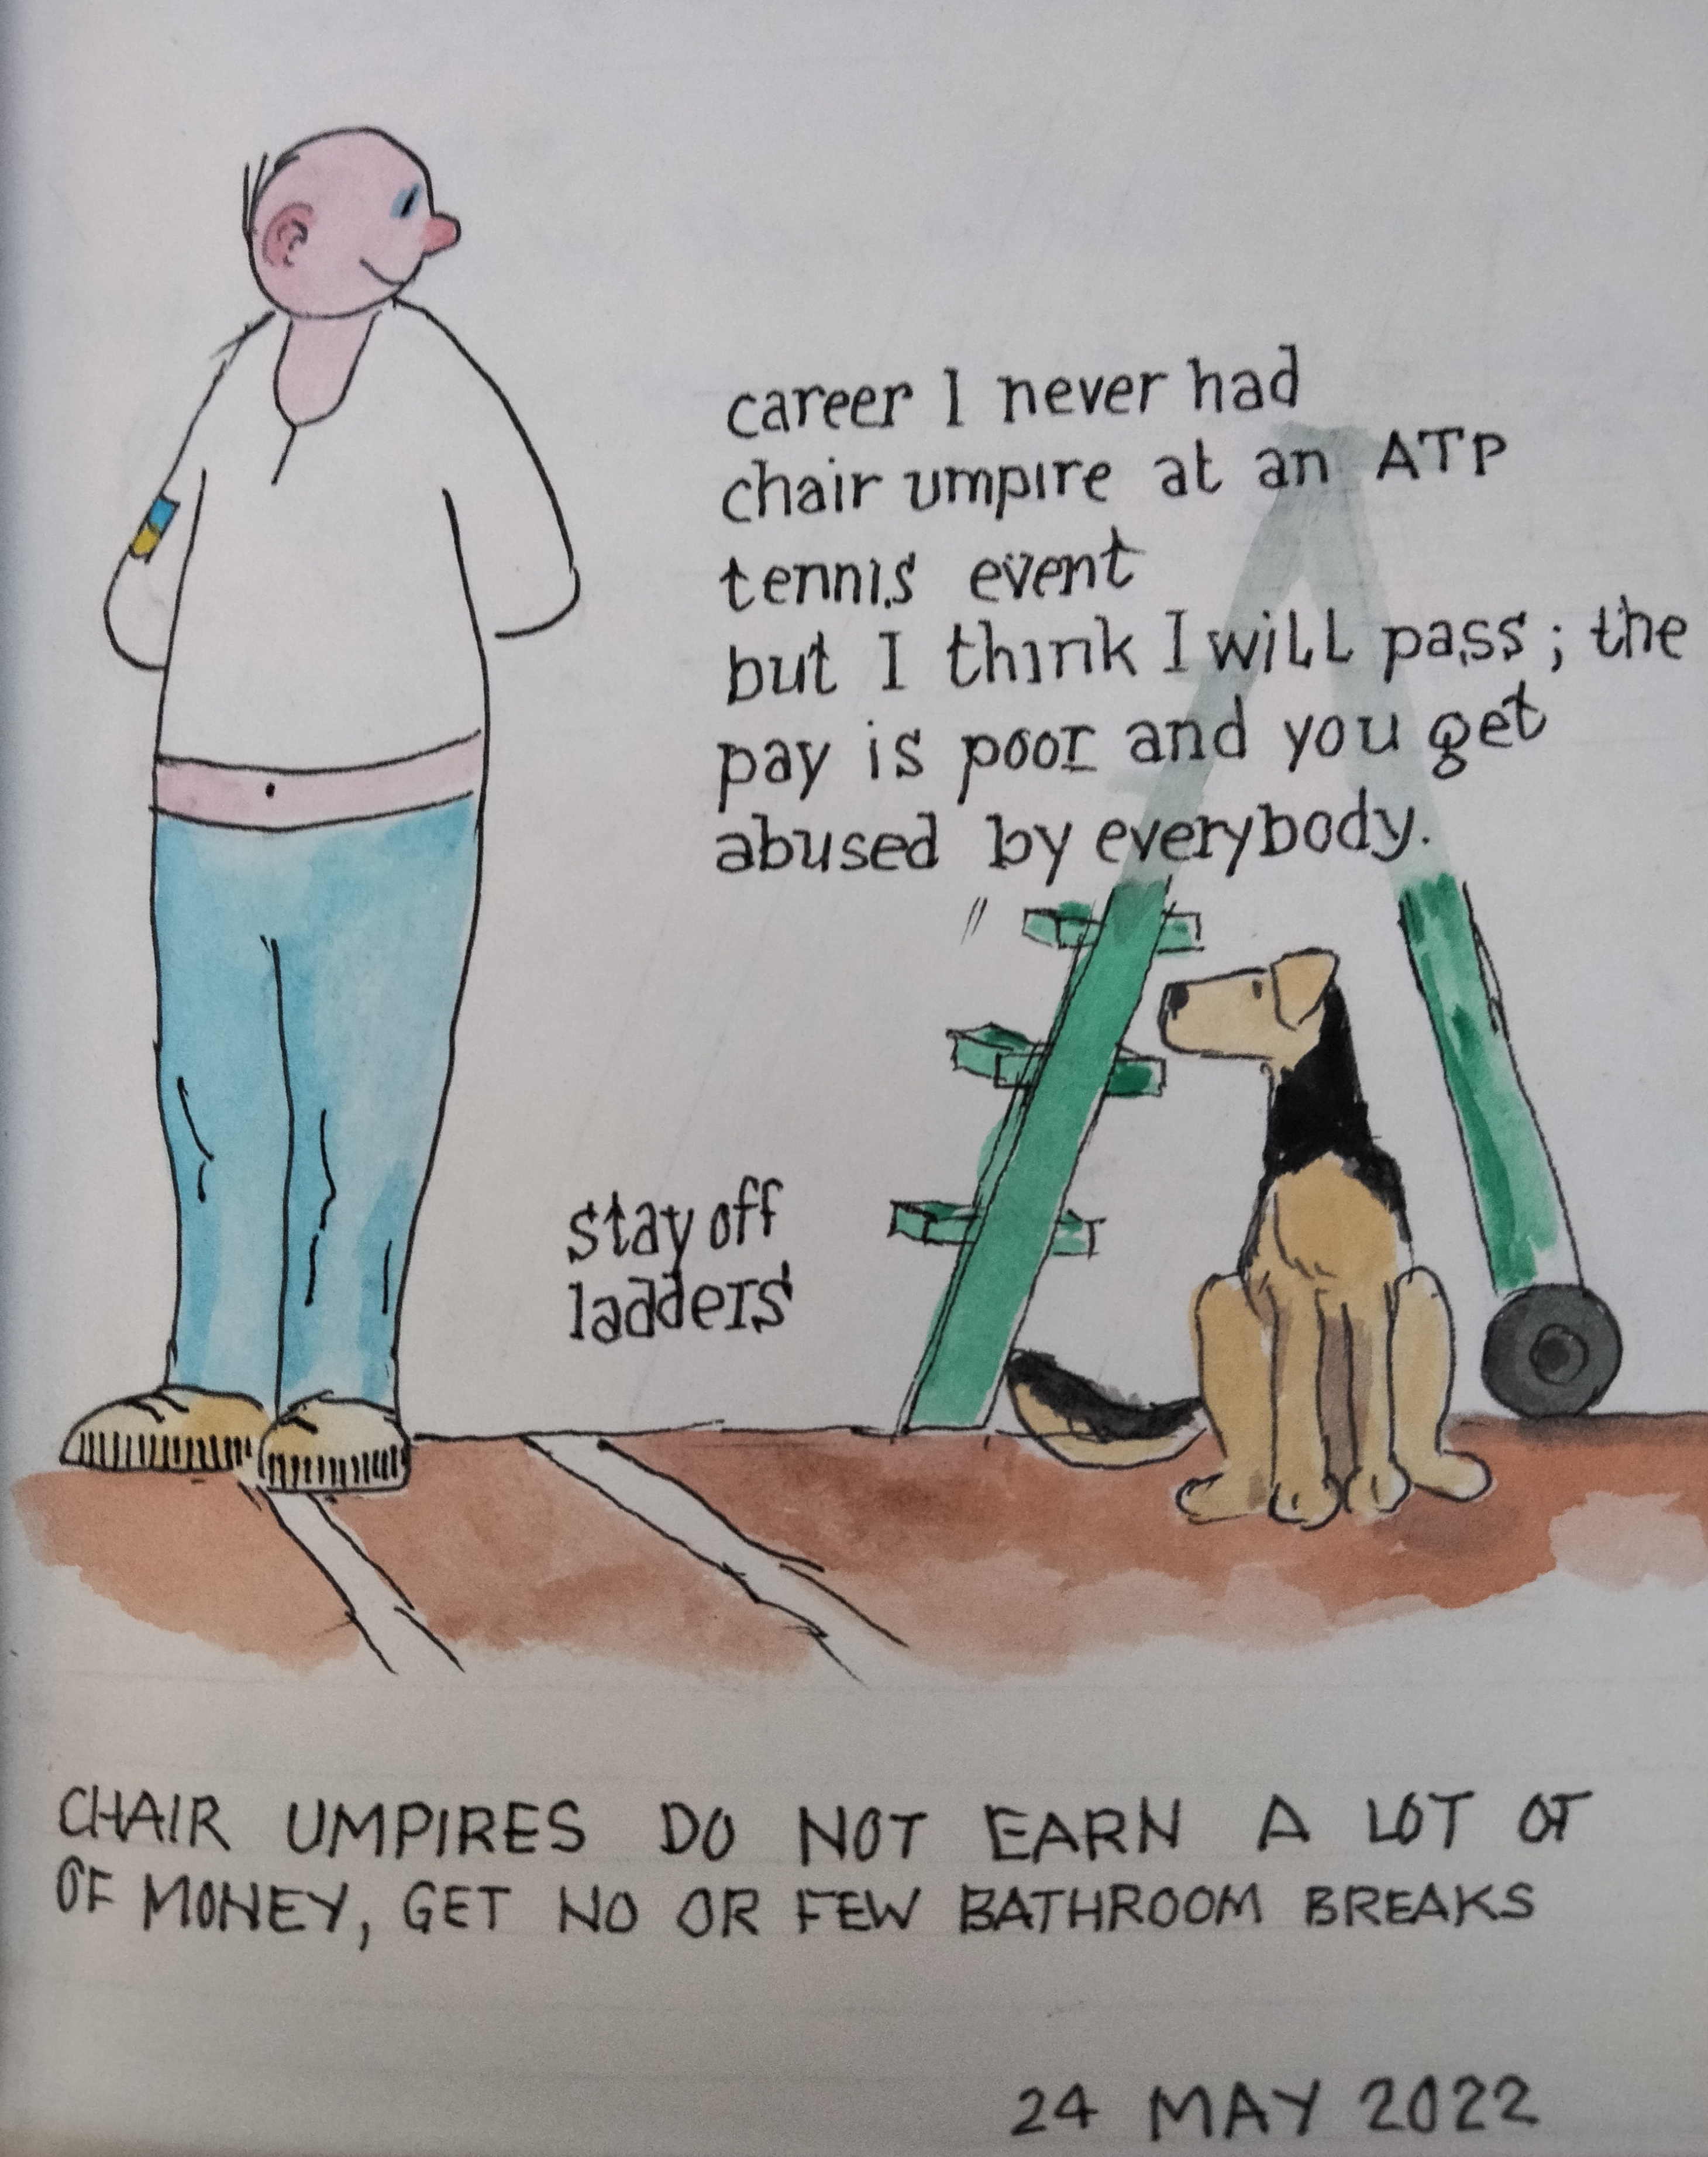 career I never had
chair umpire at an ATP
tennis event
but I think I will pass; the
pay is poor and you get
abused by everybody.
stay off
ladders
CHAIR UMPIRES DO NOT EARN A LOT OF
OF MONEY, GET NO OR FEW BATHROOM BREAKS
24 MAY 2022